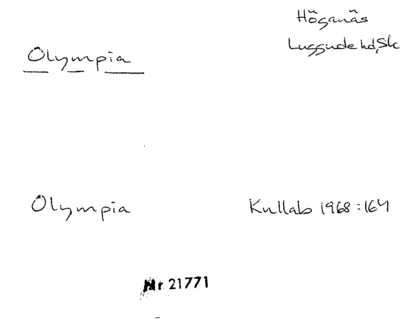 Höganäs
Luggude hd, Sk
Olympia
Olympia
Kullab 1968:164
Nr 21771